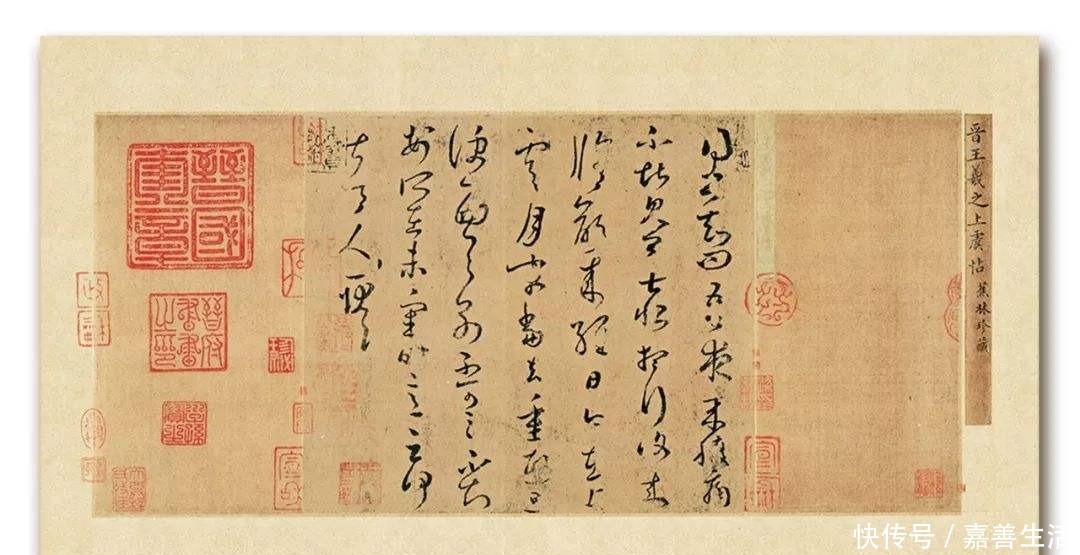 晉王羲之上虞帖 蕉林珍藏
得書知問吾夜來腹痛
不堪見卿甚恨想行復來
脩齡來經日今在上
虞月末當去重熙旦
便西與別不可言不知
安所在未審時意云何
甚令人耿耿
晉國奎章
晉府書畫之印
快传号 / 嘉善生活